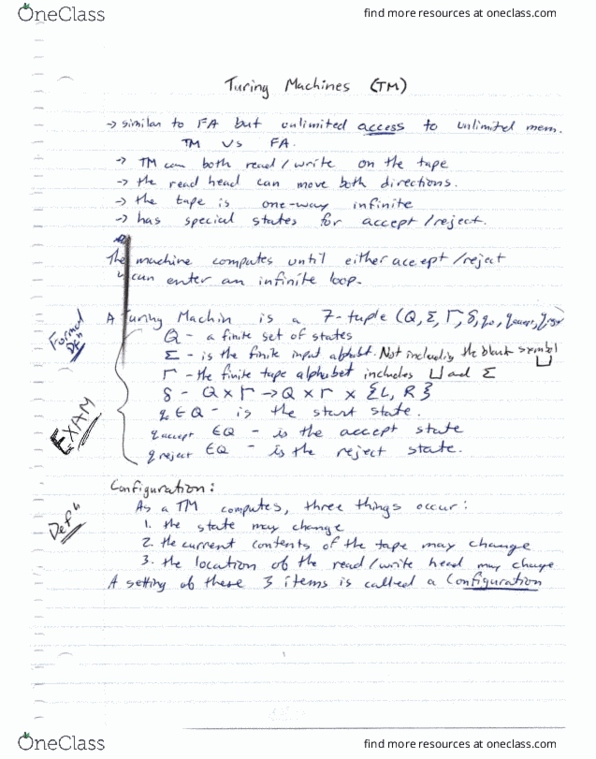 OneClass
find more resources at oneclass.com
Turing Machines (TM)
→ similar to FA but unlimited access to unlimited mem.
TM vs FA.
→ TM can both read/write on the tape
→ the read head can move both directions.
→ the tape is one-way infinite
→ has special states for accept/reject.
The machine computes until either accept/reject
↳ can enter an infinite loop.
Formal Defn
A Turing Machin is a 7-tuple (Q, Σ, Γ, δ, q₀, qaccept, qreject)
Q - a finite set of states
Σ - is the finite input alphabet. Not including the blank symbol ⊔
Γ - the finite tape alphabet includes ⊔ and Σ
δ - Q × Γ → Q × Γ × {L, R}
EXAM
q₀ ∈ Q - is the start state.
q accept ∈ Q - is the accept state
q reject ∈ Q - is the reject state.
Configuration:
Defn
As a TM computes, three things occur:
1. the state may change
2. the current contents of the tape may change
3. the location of the read/write head may change
A setting of these 3 items is called a Configuration
OneClass
find more resources at oneclass.com